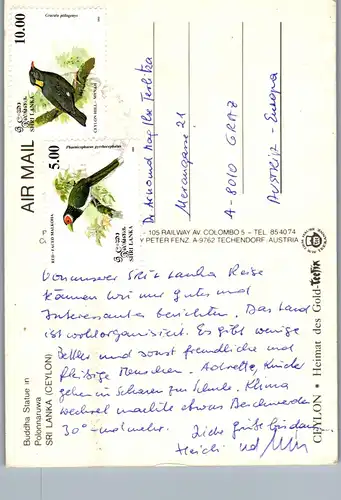 Gracula ptilogenys
10.00
SRI LANKA
CEYLON HILL-MYNAH
Phaenicophaeus pyrrhocephalus
5.00
SRI LANKA
RED-FACED MALKOHA
AIR MAIL
Meranagasse 21
A-8010 GRAZ
AUSTRIA - Europa
105 RAILWAY AV. COLOMBO 5 - TEL. 854074
Y PETER FENZ. A-9762 TECHENDORF. AUSTRIA
Von unserer Sri Lanka Reise
können wir nur gutes und
Interessantes berichten. Das Land
ist wohlorganisiert. Es gibt wenige
Bettler und sonst freundliche und
fleißige Menschen. Adrette, Kinder
gehen in Scharen zur Schule. Klima
wechsel machte etwas Beschwerden
30° und mehr. Liebe Grüße
Heidi und
Buddha Statue in
Polonnaruwa
SRI LANKA (CEYLON)
CEYLON • Heimat des Gold-Teefix